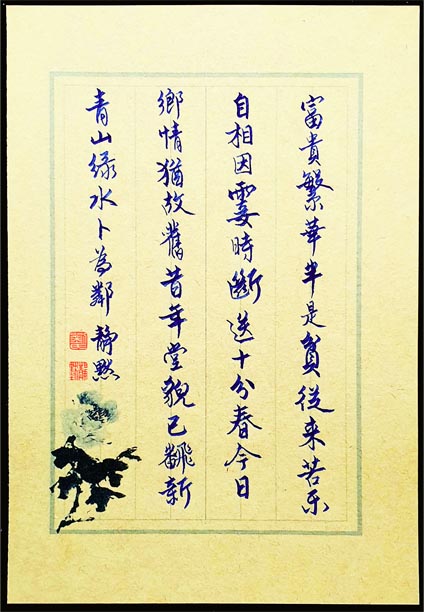 富貴繁華半是貧從来苦乐
自相因霎時斷送十分春今日
鄉情猶故舊昔年堂貌已飜新
青山緑水卜為鄰 靜默